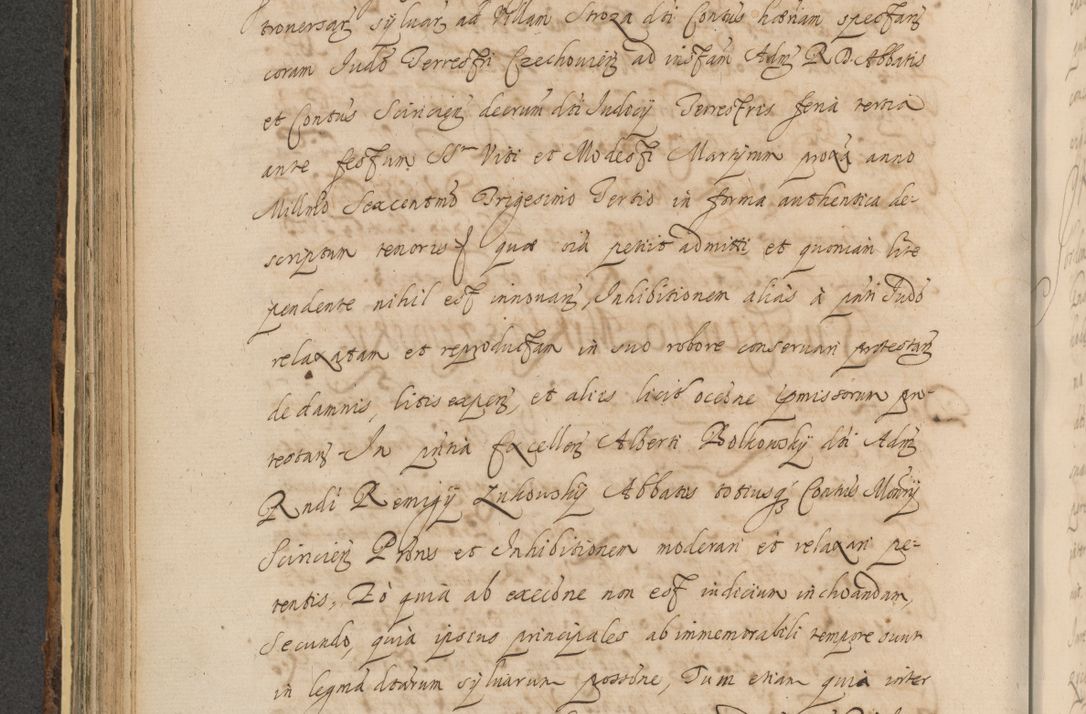 troversarz sylvarz ad Villam Stroza dti Contus haenam spectarz
coram Judo Terrestri Czechovien ad instam Adm R D Abbatis
et Contus Sciricien decrum dti Judicij Terrestris feria tertia
ante festum SSrum Viti et Modesti Martyrum proxa anno
Millmo Sexcentmo Trigesimo Tertio in forma authentica de-
scriptum tenoris quae oia petiit admitti et quoniam lite
pendente nihil est innovan, Inhibitionem alias à pnti Judo
relaxatam et reproductam in suo robore conservari protestan
de damnis, litis expen, et alies licit oceone pmissorum pn-
testan In pntia Excellen Alberti Bolkowsky dti Adm
Rndi Remigij Zukowsky Abbatis totiusq Contus Monrij
Sciricien Proris et Inhibitionem moderari et relaxari pe-
tentis, Io quia ab execone non est indicium inchoandum,
Secundo, quia ipsius principales ab immemorabili tempore sunt
in legma dtarum sylvarum possone, Tum etiam quia inter